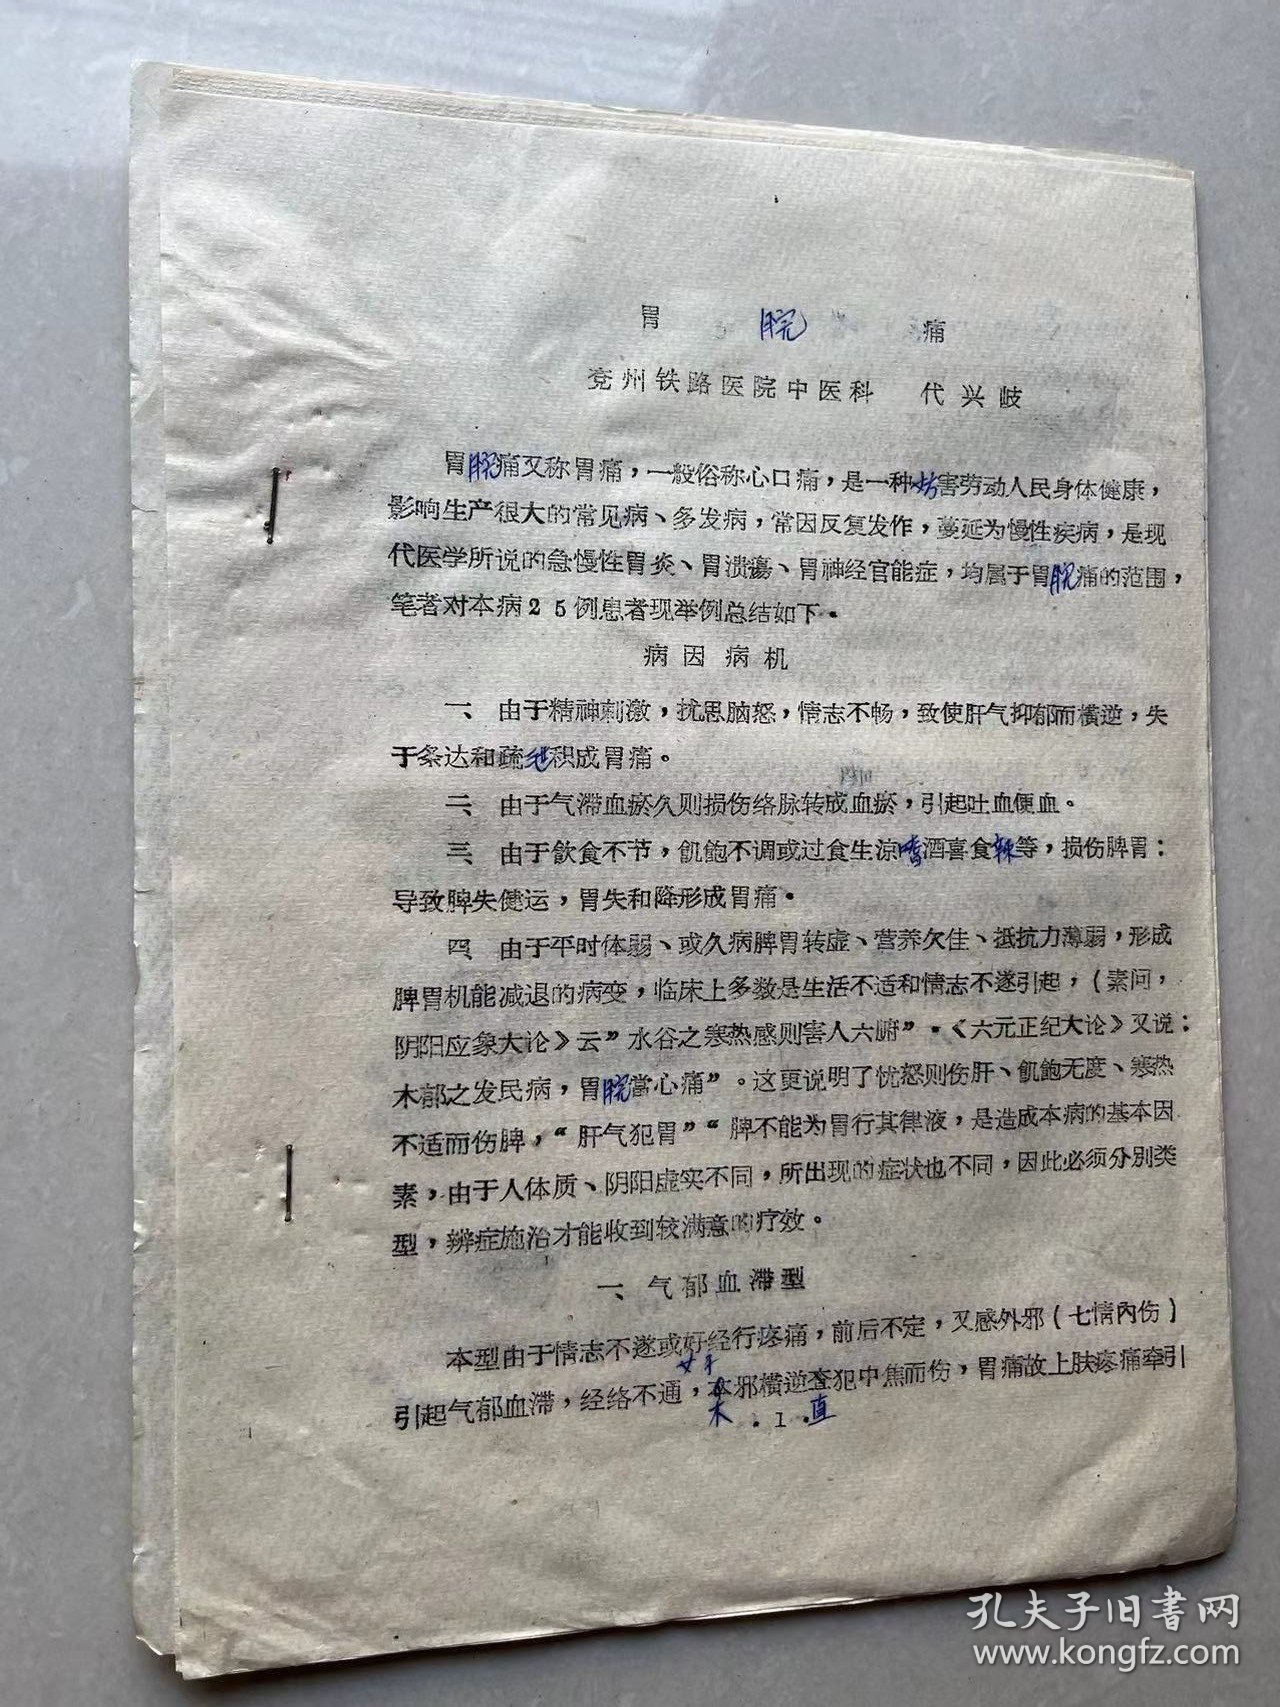 胃脘痛
兖州铁路医院中医科 代兴岐
胃脘痛又称胃痛，一般俗称心口痛，是一种妨害劳动人民身体健康，
影响生产很大的常见病、多发病，常因反复发作，蔓延为慢性疾病，是现
代医学所说的急慢性胃炎、胃溃疡、胃神经官能症，均属于胃脘痛的范围，
笔者对本病25例患者现举例总结如下。
病因病机
一、由于精神刺激，扰思脑怒，情志不畅，致使肝气抑郁而横逆，失
于条达和疏泄积成胃痛。
二、由于气滞血瘀久则损伤络脉转成血瘀，引起吐血便血。
三、由于飲食不节，飢飽不调或过食生凉嗜酒喜食辣等，损伤脾胃：
导致脾失健运，胃失和降形成胃痛。
四、由于平时体弱、或久病脾胃转虚、营养欠佳、抵抗力薄弱，形成
脾胃机能减退的病变，临床上多数是生活不适和情志不遂引起，（素问，
阴阳应象大论》云”水谷之寒热感则害人六腑”。《六元正纪大论》又说：
木部之发民病，胃脘當心痛”。这更说明了忧怒则伤肝、飢飽无度、寒热
不适而伤脾，“肝气犯胃”“脾不能为胃行其律液，是造成本病的基本因
素，由于人体质、阴阳虚实不同，所出现的症状也不同，因此必须分別类
型，辨症施治才能收到较满意的疗效。
一、气郁血滞型
本型由于情志不遂或好经行疼痛，前后不定，又感外邪（七情內伤）
引起气郁血滞，经络不通，本邪横逆查犯中焦而伤，胃痛故上肤疼痛牵引
木 直
.1.
孔夫子旧书网
www.kongfz.com